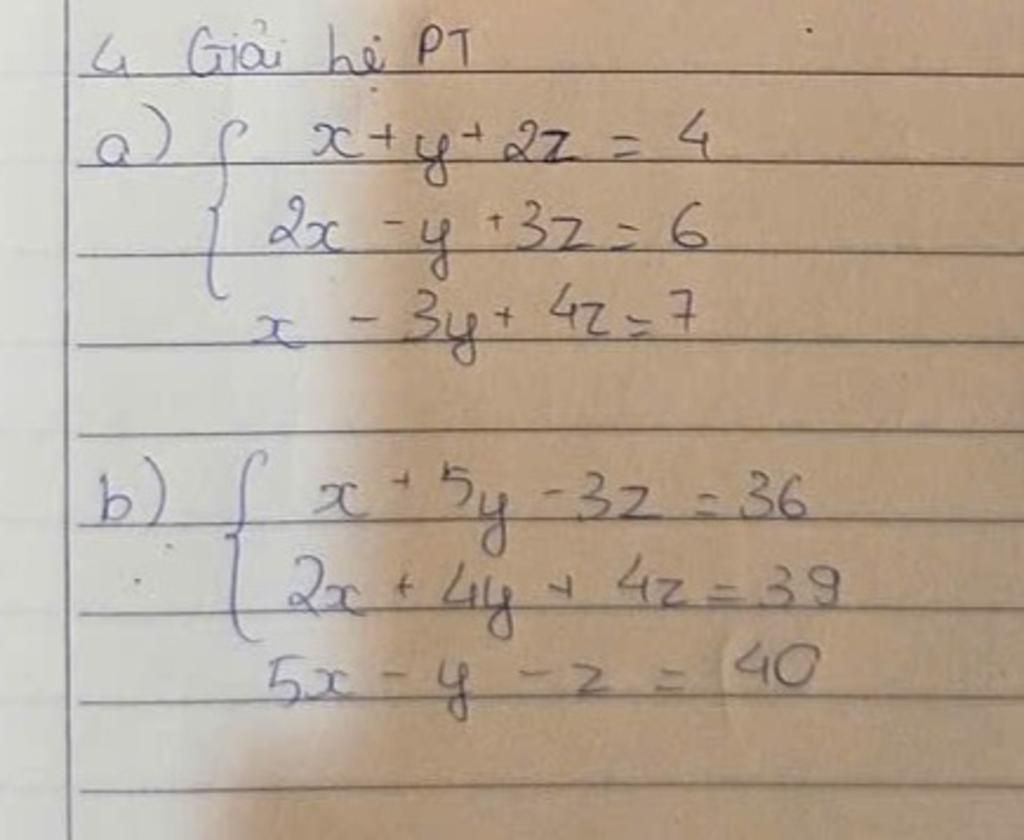 4 Giải hệ PT
a) { x + y + 2z = 4
2x - y + 3z = 6
x - 3y + 4z = 7
b) { x + 5y - 3z = 36
2x + 4y + 4z = 39
5x - y - z = 40